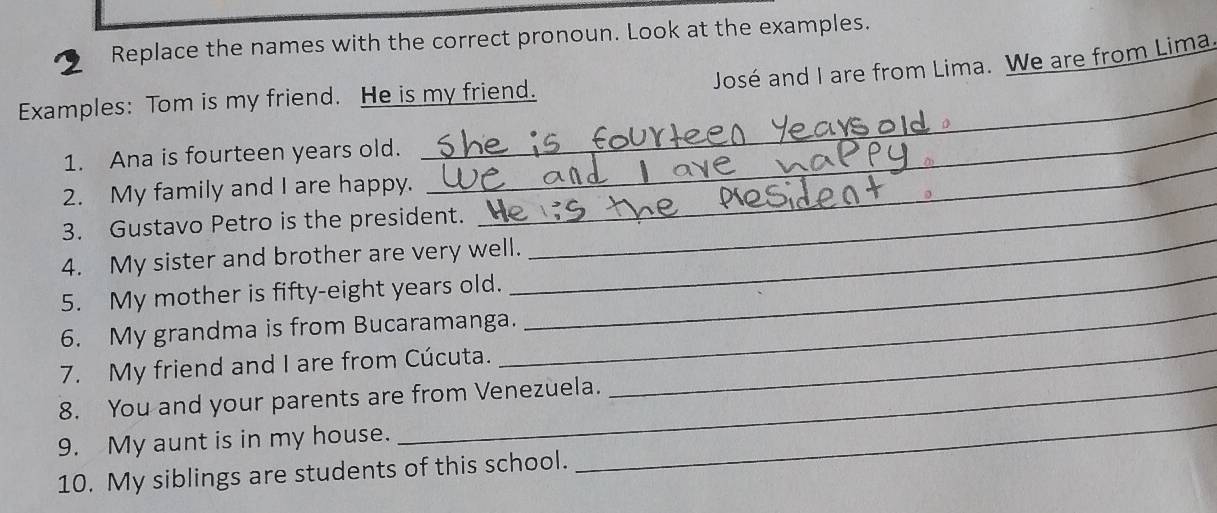 2 Replace the names with the correct pronoun. Look at the examples.
Examples: Tom is my friend. He is my friend. José and I are from Lima. We are from Lima.
1. Ana is fourteen years old. She is fourteen years old.
2. My family and I are happy. We and I are happy.
3. Gustavo Petro is the president. He is the president.
4. My sister and brother are very well.
5. My mother is fifty-eight years old.
6. My grandma is from Bucaramanga.
7. My friend and I are from Cúcuta.
8. You and your parents are from Venezuela.
9. My aunt is in my house.
10. My siblings are students of this school.